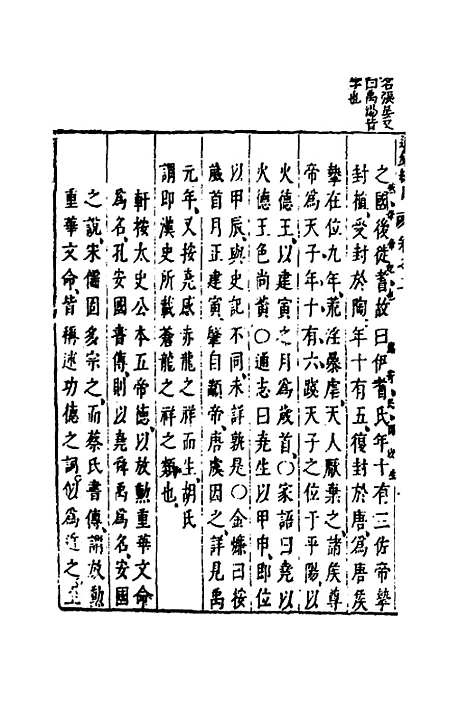 名張晏又
曰禹湯皆
字也
之國後徙耆故曰伊耆氏年十有三佐帝摯
封植受封於陶年十有五復封於唐爲唐侯
摯在位九年荒淫暴虐天人厭棄之諸侯尊
帝爲天子年十有六踐天子之位于平陽以
火德王以建寅之月爲歲首〇家語曰堯以
火德王色尚黃〇通志曰堯生以甲申即位
以甲辰與史記不同未詳孰是〇金縢曰按
歲首月正建寅肇自顓帝唐虞因之詳見禹
元年又按堯感赤龍之祥而生胡氏
謂即漢史所載蒼龍之祥之類也
軒按太史公本五帝德以放勳重華文命
爲名孔安國書傳則以堯舜禹爲名安國
之說宋儒固多宗之而蔡氏書傳謂放勳
重華文命皆稱述功德之詞似爲近之